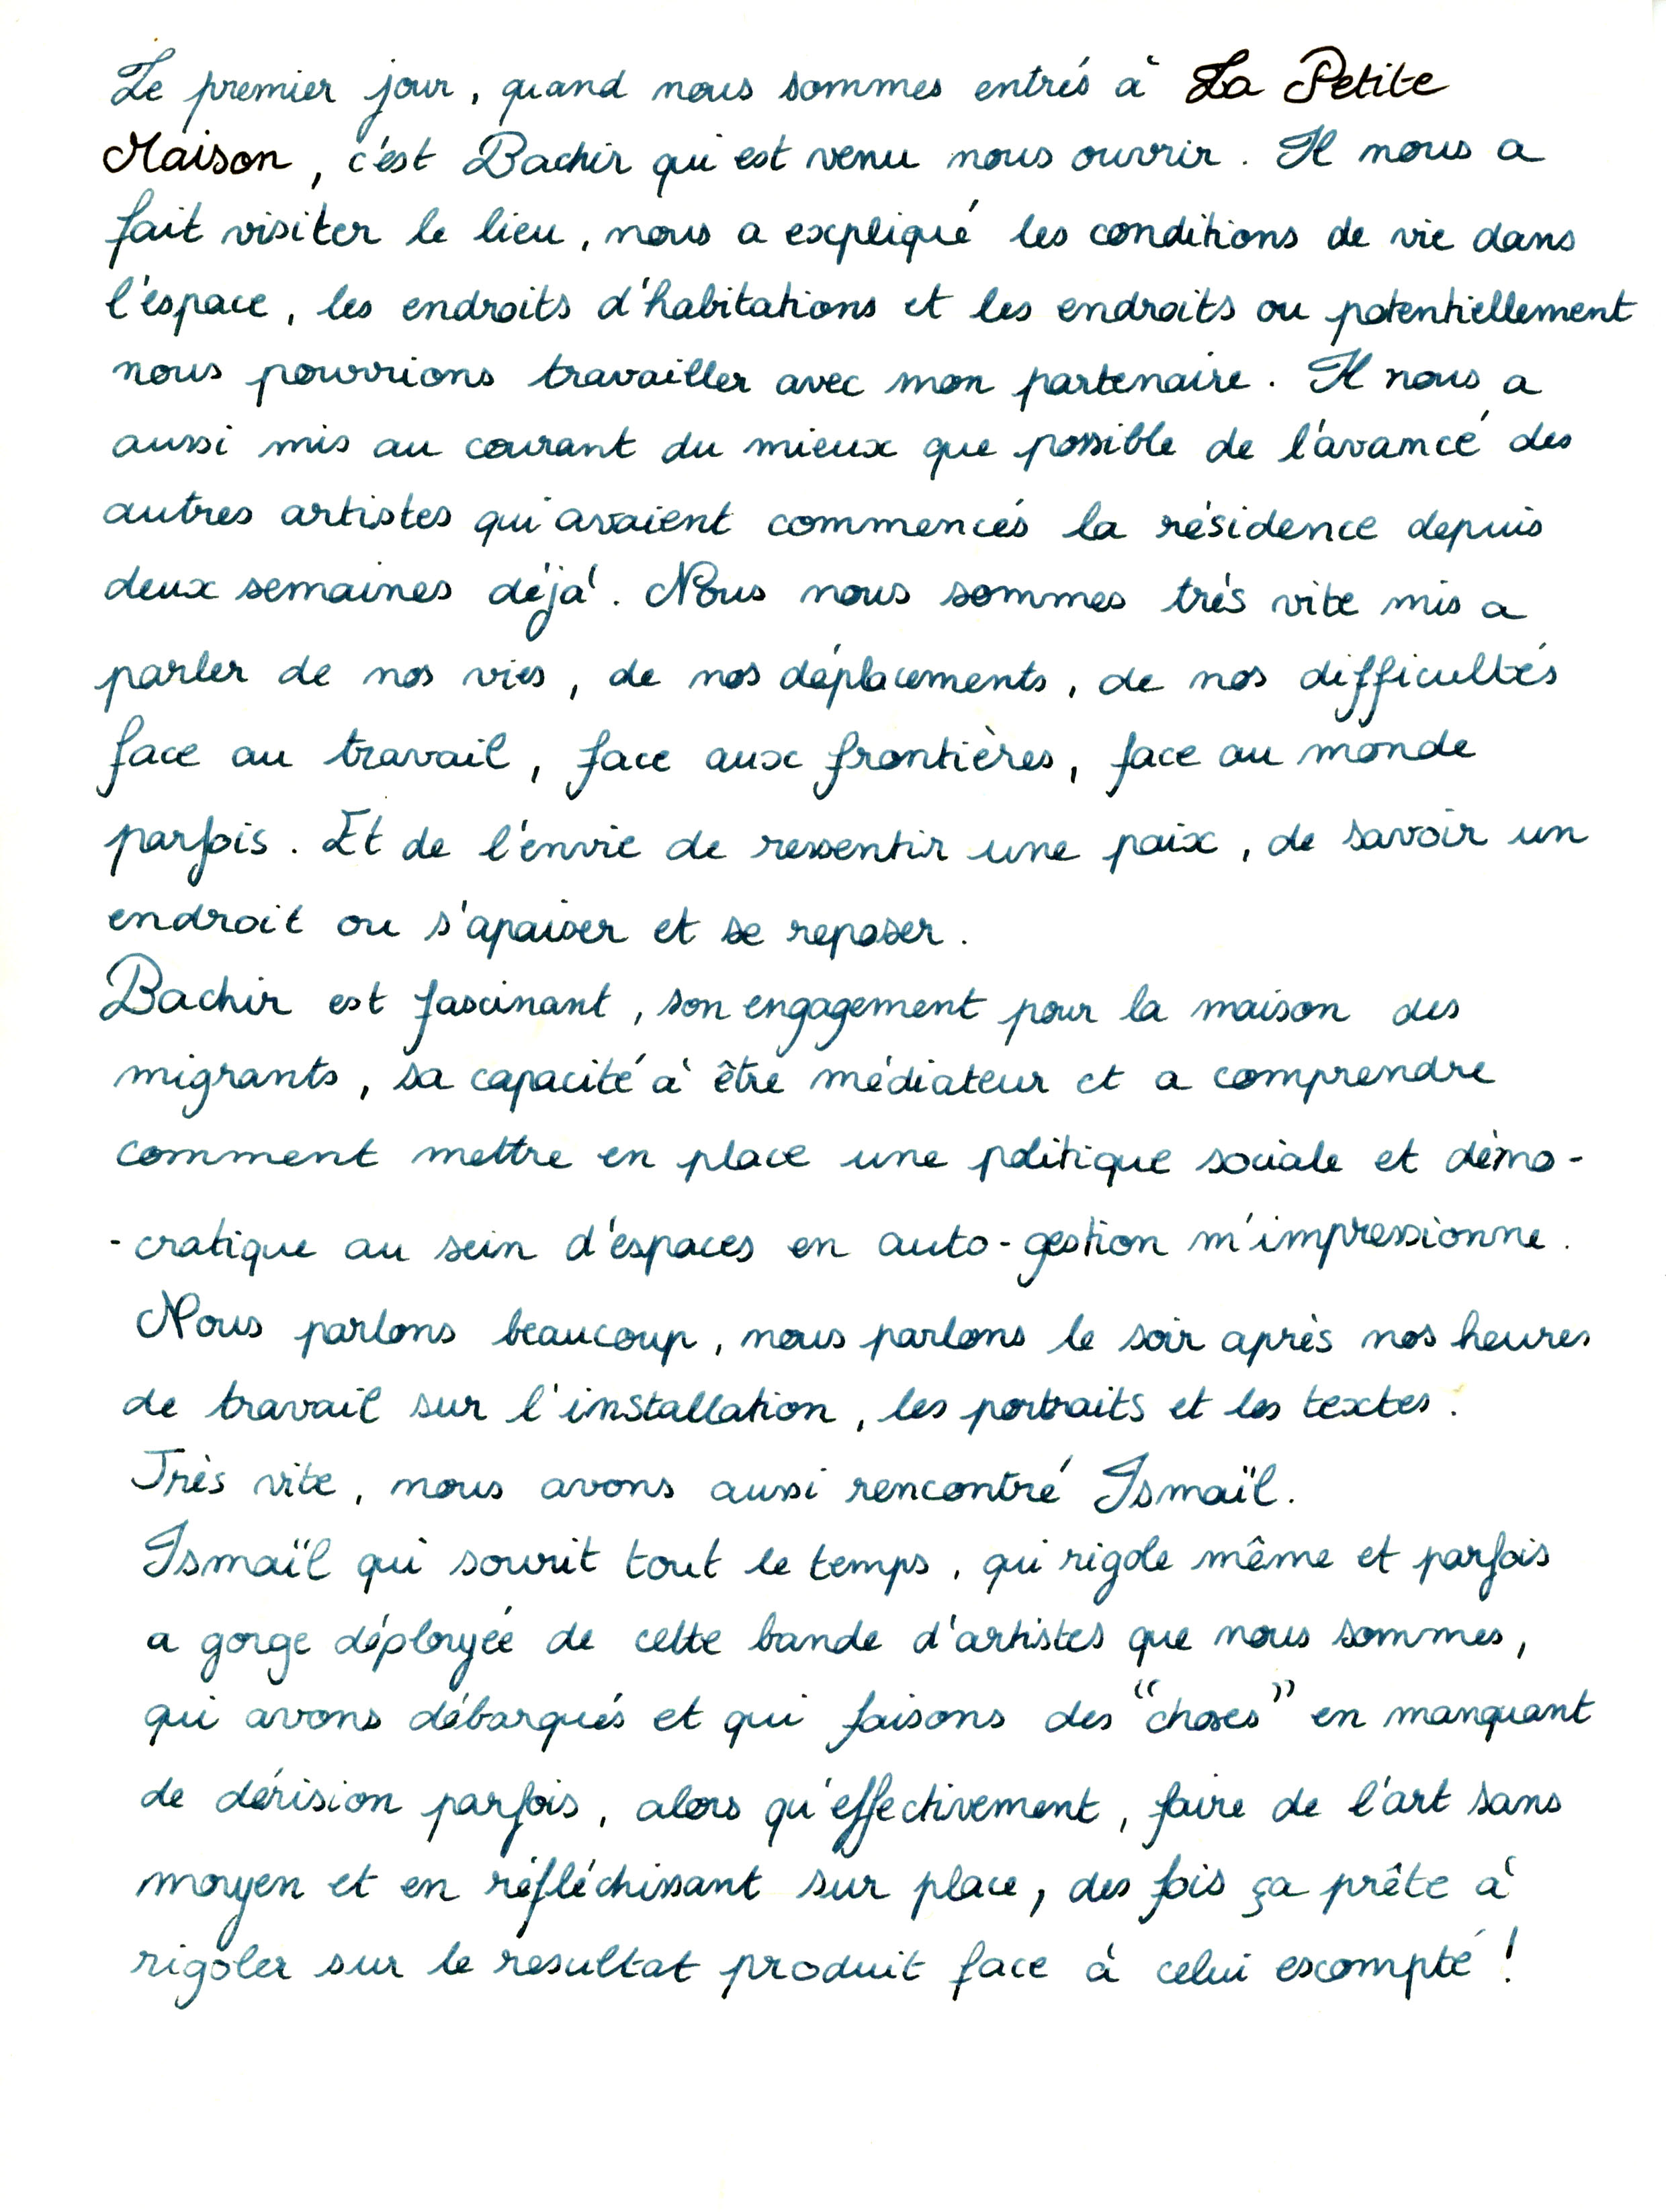 Le premier jour, quand nous sommes entrés à La Petite
Maison, c'est Bachir qui est venu nous ouvrir. Il nous a
fait visiter le lieu, nous a expliqué les conditions de vie dans
l'espace, les endroits d'habitations et les endroits ou potentiellement
nous pourrions travailler avec mon partenaire. Il nous a
aussi mis au courant du mieux que possible de l'avancé des
autres artistes qui avaient commencés la résidence depuis
deux semaines déjà. Nous nous sommes très vite mis a
parler de nos vies, de nos déplacements, de nos difficultés
face au travail, face aux frontières, face au monde
parfois. Et de l'envie de ressentir une paix, de savoir un
endroit ou s'apaiser et se reposer.
Bachir est fascinant, son engagement pour la maison des
migrants, sa capacité à être médiateur et a comprendre
comment mettre en place une politique sociale et démo-
-cratique au sein d'espaces en auto-gestion m'impressionne.
Nous parlons beaucoup, nous parlons le soir après nos heures
de travail sur l'installation, les portraits et les textes.
Très vite, nous avons aussi rencontré Ismaïl.
Ismaïl qui sourit tout le temps, qui rigole même et parfois
a gorge déployée de cette bande d'artistes que nous sommes,
qui avons débarqués et qui faisons des "choses" en manquant
de dérision parfois, alors qu'effectivement, faire de l'art sans
moyen et en réfléchissant sur place, des fois ça prête à
rigoler sur le resultat produit face à celui escompté !